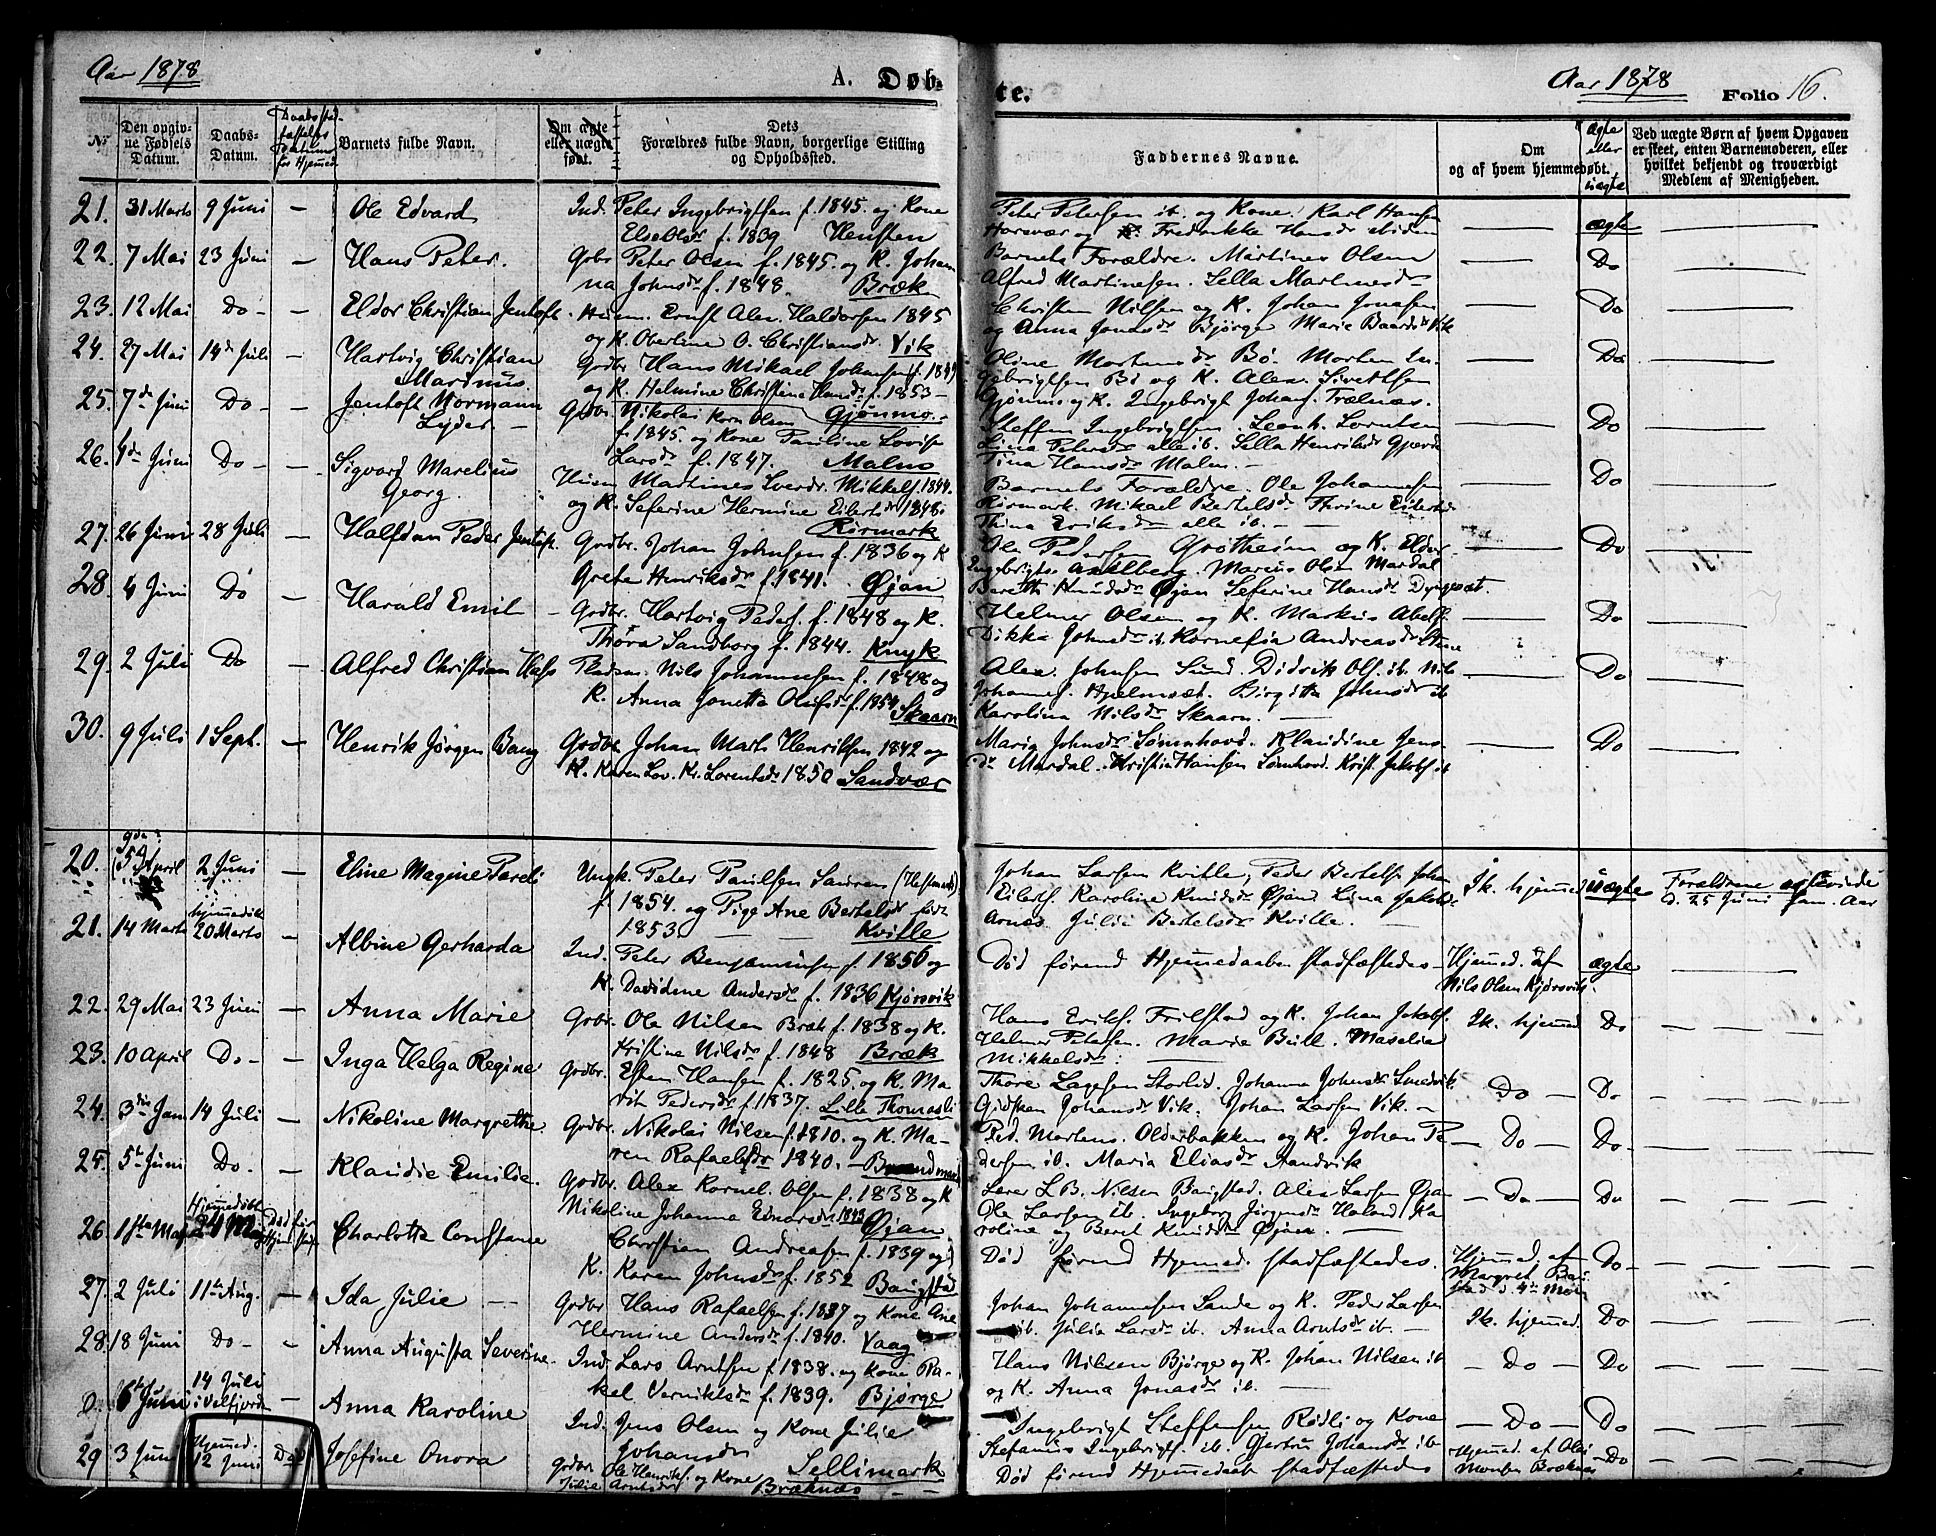 Aar 1878
A. Døb-
te.
Aar 1878
Folio 16.
No
Den opgiv-
ne Fødsels
Datum.
Daabs-
Datum.
Barnets fulde Navn.
Om ægte
eller uægte
født.
Dets
Forældres fulde Navn, borgerlige Stilling
og Opholdssted.
Faddernes Navne.
Om
og af hvem hjemmedøbt.
ægte
eller
uægte
Ved uægte Børn af hvem Opgaven
er skeet, enten Barnemoderen, eller
hvilket bekjendt og troværdigt
Medlem af Menigheden.
21. 31 Marts 9 Juni — Ole Edvard Ind. Peter Ingebrigtsen f. 1845. og Kone
Elsebe f. 1839 Hensten
Peter Petersen ib. og Kone. Karl Hansen
Horsvær og K. Fredrikke Hansdr — ægte —
22. 7 Mai 23 Juni — Hans Peter. Gbr Peter Olsen f. 1845. og K. Johan
na Johnsdr f. 1848. Bræk
Barnets Forældre. Martines Olsen
Alfred Martinesen. Sella Martinesdr — Do —
23. 12 Mai Do — — Eldor Christian Jentoft. Huusm. Ernst Alex. Haldorsen 1845
og K. Oberline O. Christiansdr. Vik
Christen Nilsen og K. Johan Jonasen
og Anna Jonasdr Bjørge Marie Baardsdr Vik — Do —
24. 27 Mai 14de Juli — Hartvig Christian
Marinus.
Gdbr Hans Mikael Johansen f. 1849
og K. Helmine Christine Hansdr f. 1853 —
Gjønmo.
Oline Mortensdr Bø. Morten In-
gebrigtsen Bø og K. Alex. Sivertsen
Gjønmo og K. Ingebrigt Johans. Trælnæs. — Do —
25. 7de Juni Do — Jentoft Normann
Lyder —
Gdbr. Nikolai Korn Olsen
f. 1845. og Kone Pauline Lovise
Larsdr f. 1847. Malmo
Steffen Ingebrigtsen. Leonh. Lorntsen
Lina Petersdr alle ib. Sella Henriksdr
Tina Hansdr Malm. — Do —
26. Juni Do — — Sigvard Marelius
Georg.
Huusm Martines Mikkels. 1844.
og K. Seferine Hermine Eilertsdr 1848.
Rørmark
Barnets Forældre. Ole Johannesen
Rørmark. Mikael Bertelsdr Thrine Eilertsdr
Thina Eriksdr alle ib. — — Do —
27. 26 Juni 28 Juli — Halfdan Peder Jentoft. Gdbr. Johan Johnsen f. 1836 og K
Grete Henriksdr f. 1841. Øjan
Ole Pedersen Grøtheim og K. Eldor
Ingebrigts. Marcus Olsen Mardal
Bereth Knudsdr Øjan Seferine Hansdr — Do —
28. 4 Juni Do — Harald Emil — Gdbr. Hartvig Peders. f. 1848 og K.
Thora Sandborg f. 1844. Knyk
Helmer Olsen og K. Markus
Dikka Johnsdr ib. Kornelia Andreasdr — Do —
29. 2 Juli Do — Alfred Christian Nils Johannesen f. 1848 og
K. Anna Jonetta Olufsdr f. 1854. Skaarn
Alex. Johnsen Sund. Didrik Ols. ib. Nils
Johannes. Hjelmsæt. Birgitta Johnsdr ib
Karolina Nilsdr Skaarn. — Do —
30. 9 Juli 1 Sept. — Henrik Jørgen Bang Gdbr. Johan Marts Henriksen 1842 og
K. Karen Lov. Kr. Lorentsdr 1850 Sandvær
Marig Johnsdr Sømnhovd. Klaudine Jens-
dr Mardal. Kristian Hansen Sømnhovd. Krist. Jakobs ib — Do —
20. April 2 Juni — Eline Magine Pareli Ungk. Peter Paulsen
f. 1854. og Pige Ane Bertelsdr født
1853. Kvitle
Johan Larsen Kvitle, Peder Bertelsen
Eilerts. Karoline Knudsdr Øjan Lina Jakobsdr
Julia Bertelsdr Kville. — Ik. hjemmed uægte Forældrene
d. 25 Juni Aar
21. 14 Marts hjemmedøbt
20 Marts — Albine Gerharda Ind. Peter Benjaminsen f. 1856 og
K. Davidine Andersdr f. 1836 Kjørsvik
Død førend Hjemmedaaben stadfæstedes — Hjemmed. af
Nils Olsen Kjørsvik. ægte —
22. 29 Mai 23 Juni — Anna Marie Gdbr. Ole Nilsen Bræk f. 1838 og K.
Kristine Nilsdr f. 1848 Bræk
Hans Eriks. Frilstad og K. Johan Jakobs.
Helmer Petersen. Marie Bull. Maselia
Mikkelsdr: Ik. hjemmed Do —
23. 10 April Do — — Inga Helga Regine Gdbr. Esten Hansen f. 1825. og K. Ma
rit Pedersdr f. 1837. Lille Thomasli
Thore Lagesen Storlid. Johanna Johnsdr
Johansdr Vik. Johan Larsen Vik. — Do — Do —
24. 3die Juni 14 Juli — Nikoline Margrethe. Gdbr. Nikolai Nilsen f. 1810. og K. Ma-
ren Rafaelsdr 1840. —
Ped. Martens. Olderbakken og K. Johan Pe
dersen ib. Maria Eliasdr Sandvik — Do — Do —
25. 5te Juni Do. — Klaudie Emilie. Gdbr. Alex Kornel. Olsen f. 1838 og K
Nikoline Johanna Einarsdr 1843 Øjan
Lærer L B. Nilsen Baugstad. Alex Larsen Øjan
Ole Larsen ib. Ingeborg Jørgensdr Haland, Ka
roline og Beret Knudsdr Øjan. — Do — Do —
26. 1ste Mai Hjemmedøbt
Charlotta Constanse Christian Andreasen f. 1839 og
K. Karen Johnsdr f. 1852 Baugstad
Død førend Hjemmed. stadfæstedes. Hjemmed. af
Margret Baug
stad d. 4de Do —
27. 2 Juli 11te Aug. — Ida Julie — Gdbr Hans Rafaelsen f. 1837 og Kone Ane
Hermine Andersdr f. 1840. Vaag
Johan Johannesen Sande og K. Peder Larsen
ib. Julia Larsdr ib. Anna Arntsdr ib. — Ik. hjemmed. Do —
28. 18 Juni Do — — Anna Augusta Severine. Ind. Lars Arntsen f. 1838. og Kone Ra-
kel Verniklsdr f. 1839. Bjørge
Hans Nilssen Bjørge og K. Johan Nilsen ib
og K. Anna Jonasdr ib. — — Do — Do —
0. 6te Juli 14 Juli
i Velfjorden — Anna Karoline Ind. Jens Olsen og Kone Julie
Johansdr Sellimark
Ingebrigt Steffensen Rødli og Kone
Stefanus Ingebrigts. ib. Gjertru Johansdr ib — Do — Do —
29 3 Juni Hjemmed.
12 Juni Død Josefine Onora Gdbr. Ole Henriks. og Kone
Julie Arntsdr Bræknæs
Død førend Hjemmedaab stadfæstedes Hjemmed. af Ole
Bræknæs Do —